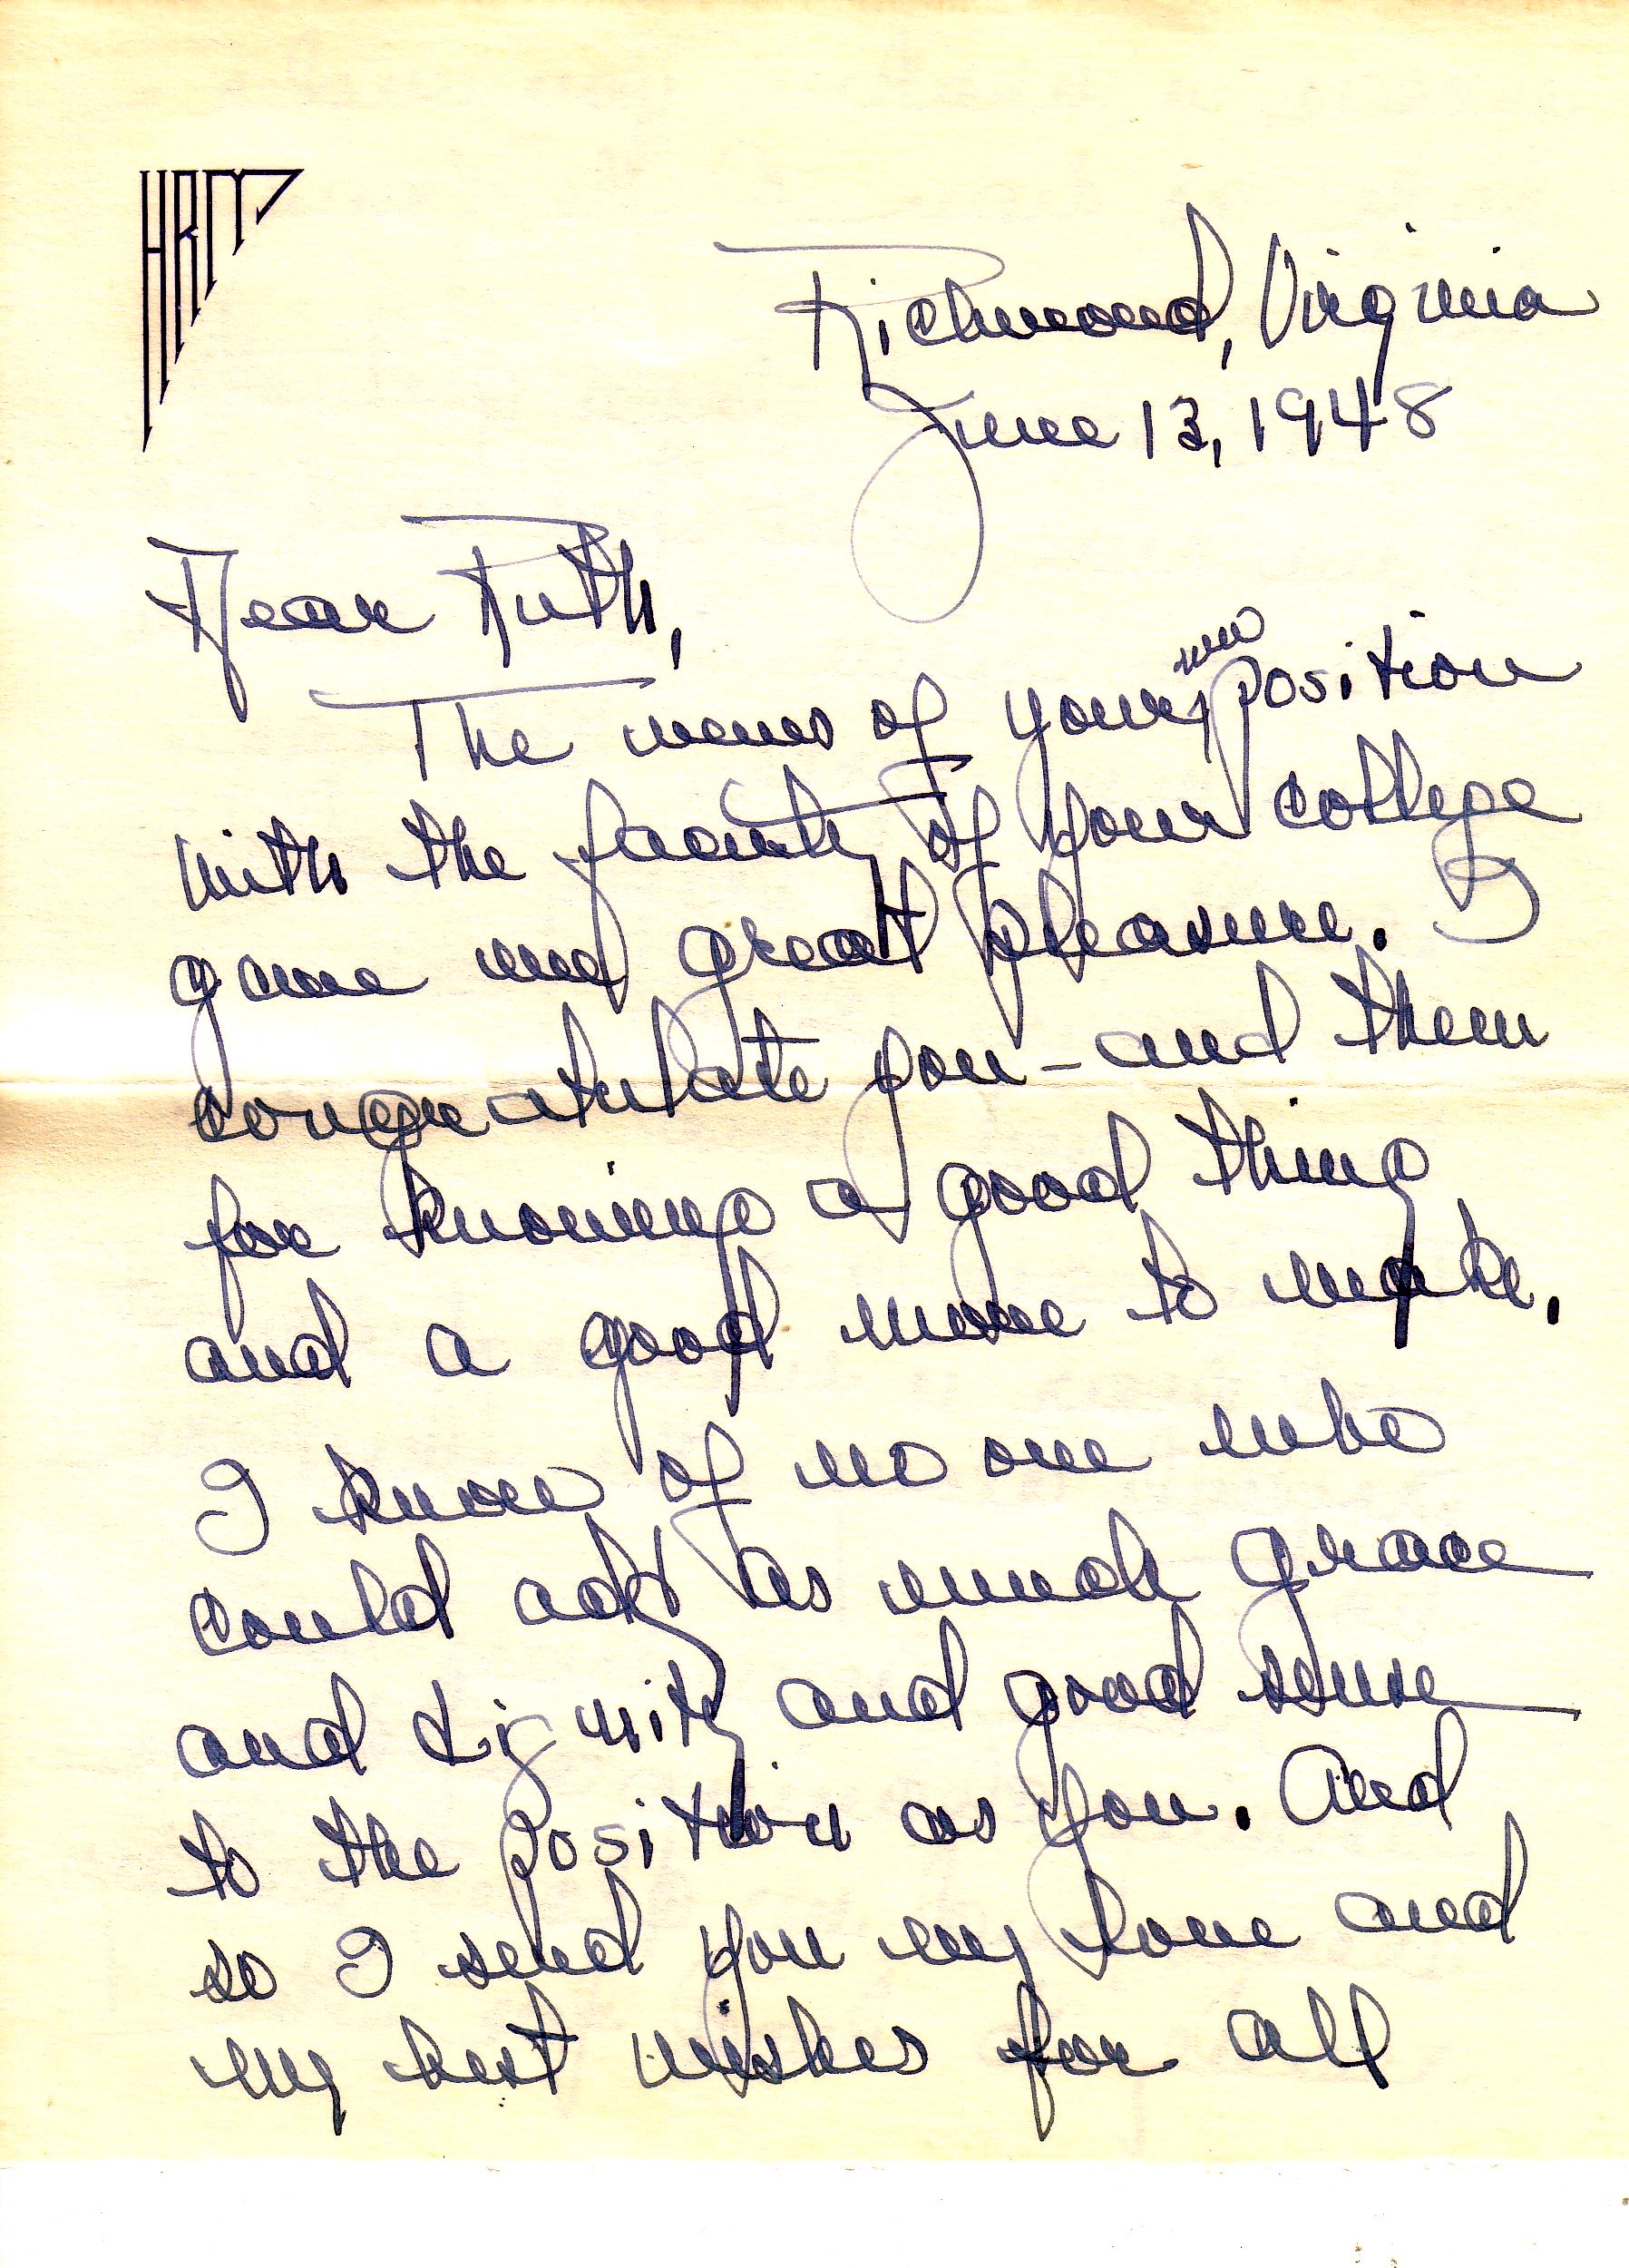 HRM
Richmond, Virginia
June 13, 1948
Dear Ruth,
new
The news of your position
with the faculty of your college
gave me great pleasure. I
congratulate you - and them
for knowing a good thing
and a good move to make.
I know of no one who
could add as much grace
and dignity and good sense
to the position as you. And
so I send you my love and
my best wishes for all